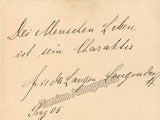 Des Menschen Leben
ist sein Charakter
Frieda Langen-Langendorf
Prag 08
Tamino Autographs